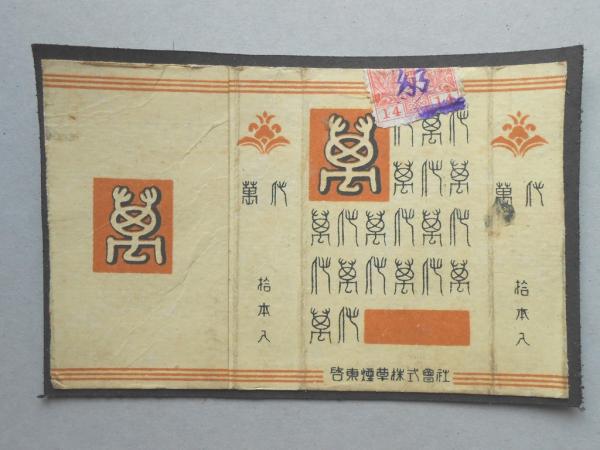 萬
萬代
拾本入
14 14
萬
代萬代
萬代萬
萬代萬代萬代
代萬代萬代萬
萬代
啓東煙草株式會社
萬代
拾本入